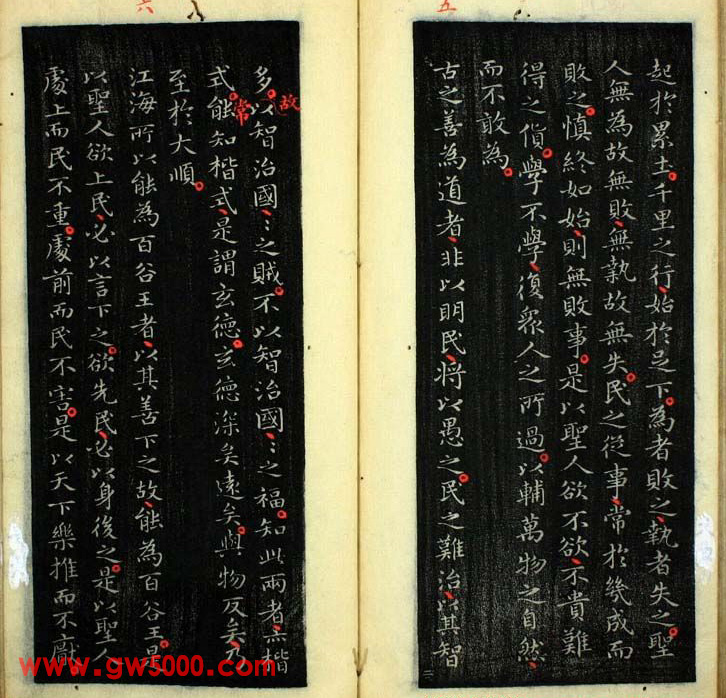 五
起於累土千里之行始於足下為者敗之執者失之聖
人無為故無敗無執故無失民之從事常於幾成而
敗之慎終如始則無敗事是以聖人欲不欲不貴難
得之貨學不學復眾人之所過以輔萬物之自然
而不敢為
古之善為道者非以明民將以愚之民之難治以其智
六
多以智治國〻之賊不以智治國〻之福知此兩者亦楷
故
式能知楷式是謂玄德玄德深矣遠矣與物反矣乃
常
至於大順
江海所以能為百谷王者以其善下之故能為百谷王是
以聖人欲上民必以言下之欲先民必以身後之是以聖人
處上而民不重處前而民不害是以天下樂推而不厭
www.gw5000.com